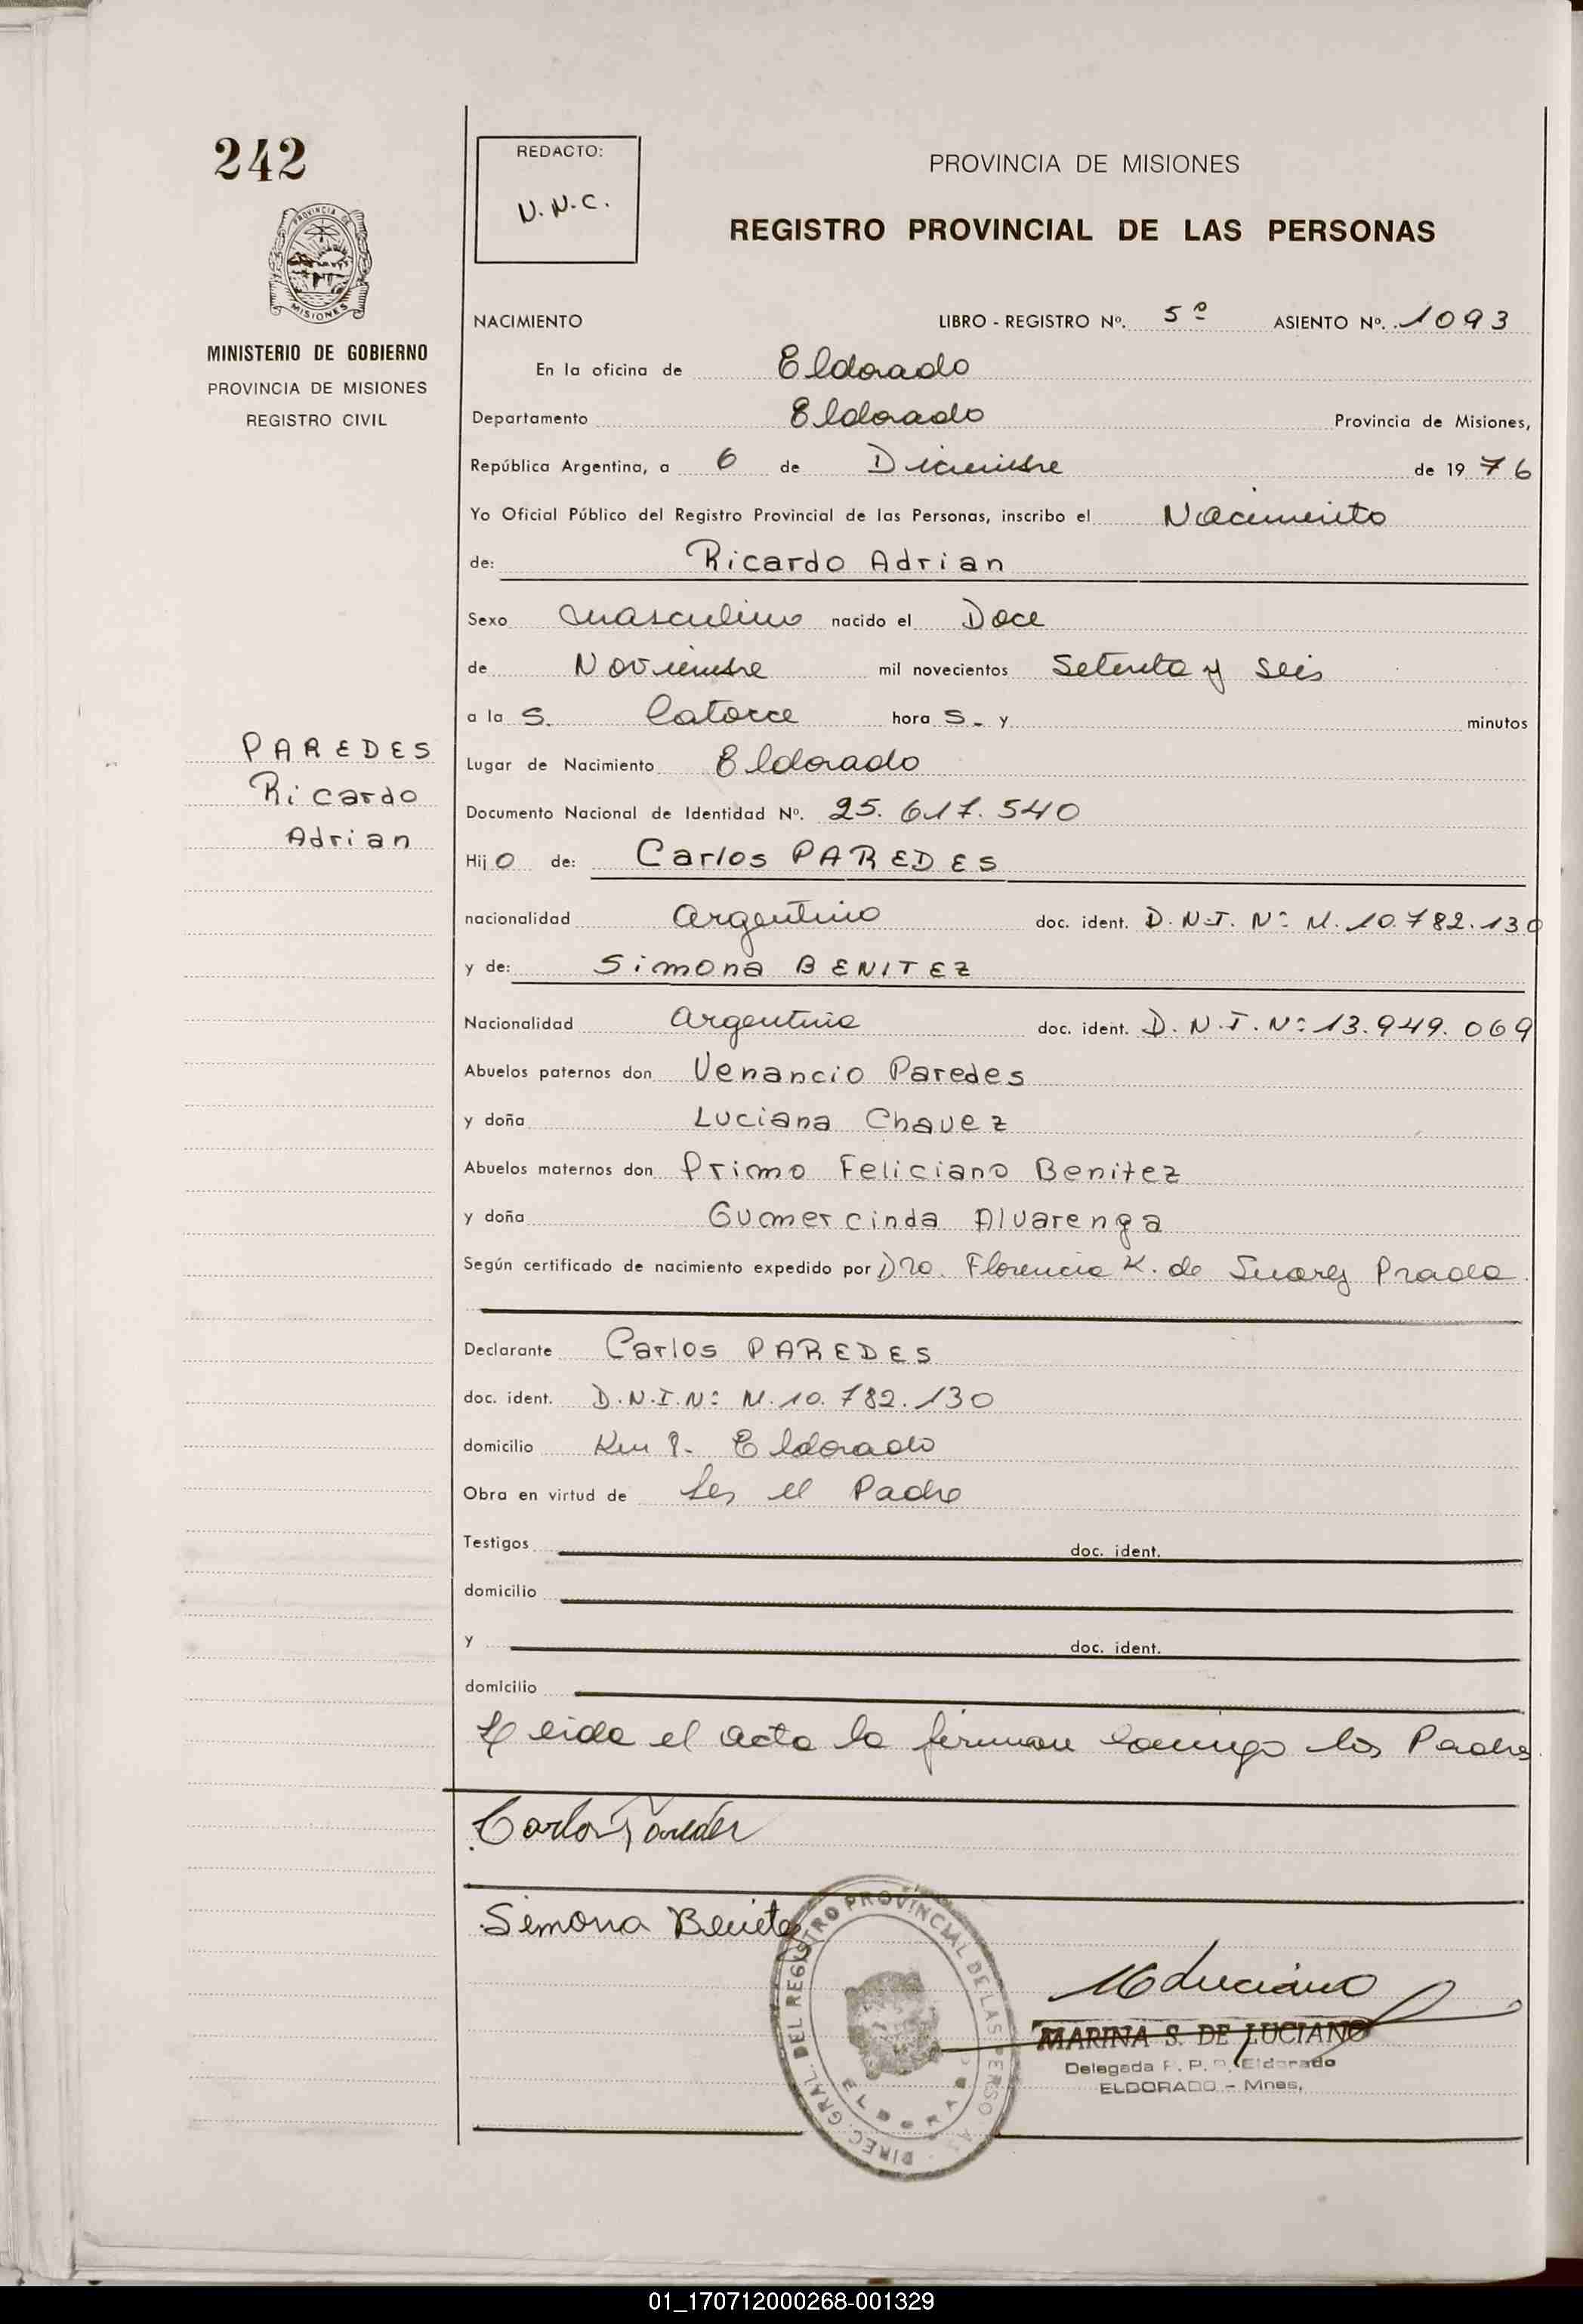 242
REDACTO:
N.N.C.
PROVINCIA DE MISIONES
REGISTRO PROVINCIAL DE LAS PERSONAS
PROVINCIA DE
MISIONES
MINISTERIO DE GOBIERNO
PROVINCIA DE MISIONES
REGISTRO CIVIL
PAREDES
Ricardo
Adrian
NACIMIENTO LIBRO - REGISTRO Nº. 5º ASIENTO Nº. 1093
En la oficina de Eldorado
Departamento Eldorado Provincia de Misiones,
República Argentina, a 6 de Diciembre de 19 76
Yo Oficial Público del Registro Provincial de las Personas, inscribo el Nacimiento
de: Ricardo Adrian
Sexo Masculino nacido el Doce
de Noviembre mil novecientos Setenta y Seis
a la s. Catorce hora s.- y minutos
Lugar de Nacimiento Eldorado
Documento Nacional de Identidad Nº. 25.617.540
Hijo de: Carlos PAREDES
nacionalidad Argentino doc. ident. D.N.I. Nº M. 10.782.130
y de: Simona BENITEZ
Nacionalidad Argentina doc. ident. D.N.I. Nº 13.949.069
Abuelos paternos don Venancio Paredes
y doña Luciana Chavez
Abuelos maternos don Primo Feliciano Benitez
y doña Gumercinda Alvarenga
Según certificado de nacimiento expedido por Dra. Florencia K. de Suarez Prado
Declarante Carlos PAREDES
doc. ident. D.N.I. Nº M. 10.782.130
domicilio Km 8- Eldorado
Obra en virtud de Ser el Padre
Testigos doc. ident.
domicilio
y doc. ident.
domicilio
Leida el acta la firman conmigo los Padres
Carlos Paredes
Simona Benitez
DIREC. GRAL. DEL REGISTRO PROVINCIAL DE LAS PERSONAS
ELDORADO
M Luciano
MARINA S. DE LUCIANO
Delegada R. P. P. Eldorado
ELDORADO - Mnes.
01_170712000268-001329